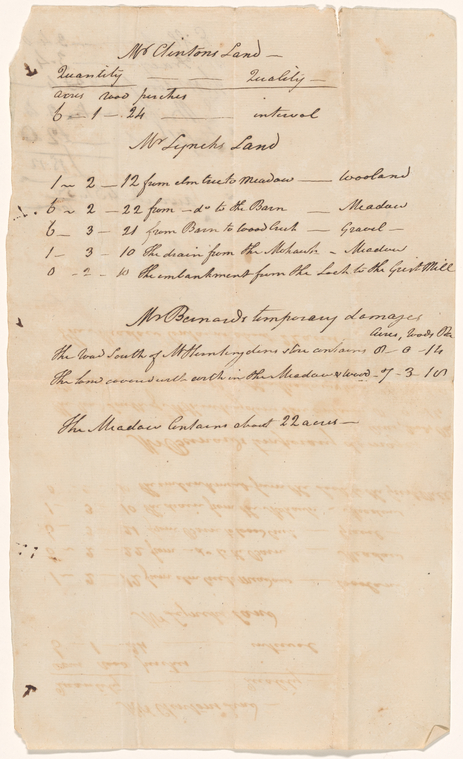 Mr Clintons Land —
Quantity — — Quality —
acres rood perches
6 — 1 — 24 — interval
Mr Lynchs Land
1 ~ 2 — 12 from elm tree to meadow — wooland
6 ~ 2 — 22 from — do to the Barn — Meadow
6 — 3 — 21 from Barn to wood Creek — Gravel —
1 — 3 — 10 The drain from the Mohawk — Meadow
0 — 2 — 10 the embankment from the Lock to the Grist Mill
Mr Bernards temporary damages
acres, roods
The road South of Mr Huntingdons store contains 0 — 0 — 14
The land covered with earth in the Meadow & wood — 7 — 3 —
The Meadow Contains about 22 acres —